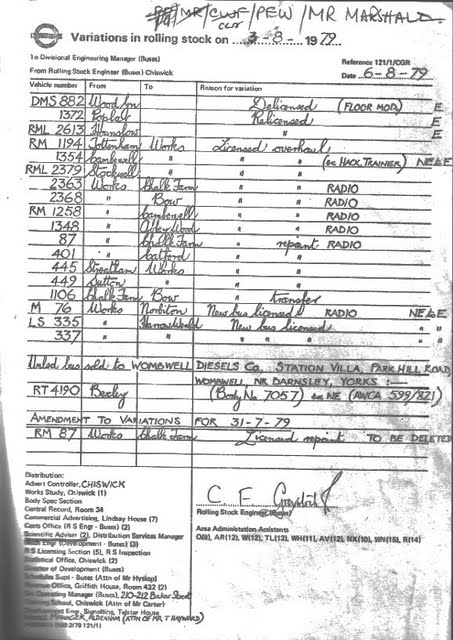 MR/CWF/PEW/MR MARSHALL
Variations in rolling stock on 3-8- 1979
To Divisional Engineering Manager (Buses)
Reference 121/1/CGR
From Rolling Stock Engineer (Buses) Chiswick
Date 6-8-79
Vehicle number From To Reason for variation
DMS 882 Wood Grn Delicensed (FLOOR MOD.) E
1372 Poplar Relicensed E
RML 2613 Hounslow " E
RM 1194 Tottenham Works Licensed overhaul
1354 Camberwell " " " (ex HACK.TRAINER) NE&E
RML 2379 Stockwell " " "
2363 Works Chalk Farm " " RADIO
2368 " Bow " " RADIO
RM 1258 " Camberwell " " RADIO
1348 " Abbey Wood " " RADIO
87 " Chalk Farm " repaint RADIO
401 " Catford " "
445 Streatham Works " "
449 Sutton " " "
1106 Chalk Farm Bow " transfer
M 76 Works Norbiton New bus licensed RADIO NE&E
LS 335 " Harrow Weald New bus licensed " "
337 " " " " " " " "
Unlsd bus sold to WOMBWELL DIESELS Co., STATION VILLA, PARK HILL ROAD,
WOMBWELL, NR BARNSLEY, YORKS :—
RT 4190 Bexley (Body No 7057) ex NE (AWCA 599/821)
AMENDMENT TO VARIATIONS FOR 31-7-79
RM 87 Works Chalk Farm Licensed repaint TO BE DELETED
Distribution:
Advert Controller, CHISWICK
Works Study, Chiswick (1)
Body Spec Section
Central Record, Room 34
Commercial Advertising, Lindsay House (7)
Costs Office (R S Engr - Buses) (2)
Scientific Adviser (2), Distribution Services Manager
Engr (Development - Buses) (3)
R S Licensing Section (5), R S Inspection
Statistical Office, Chiswick (2)
Director of Development (Buses)
Schedules Supt - Buses (Attn of Mr Hyslop)
Office, Griffith House, Room 432 (2)
Operating Manager (Buses), 210-212 Baker Street
Training School, Chiswick (Attn of Mr Carter)
Engr, Signalling, Telstar House
MANAGER, ALDENHAM (ATTN OF MR T HAYWARD)
2/79 121/1)
C E
Rolling Stock Engineer (Buses)
Area Administration Assistants
Q(9), AR(12), W(12), TL(13), WH(11), AV(12), NX(10), WN(15), R(14)